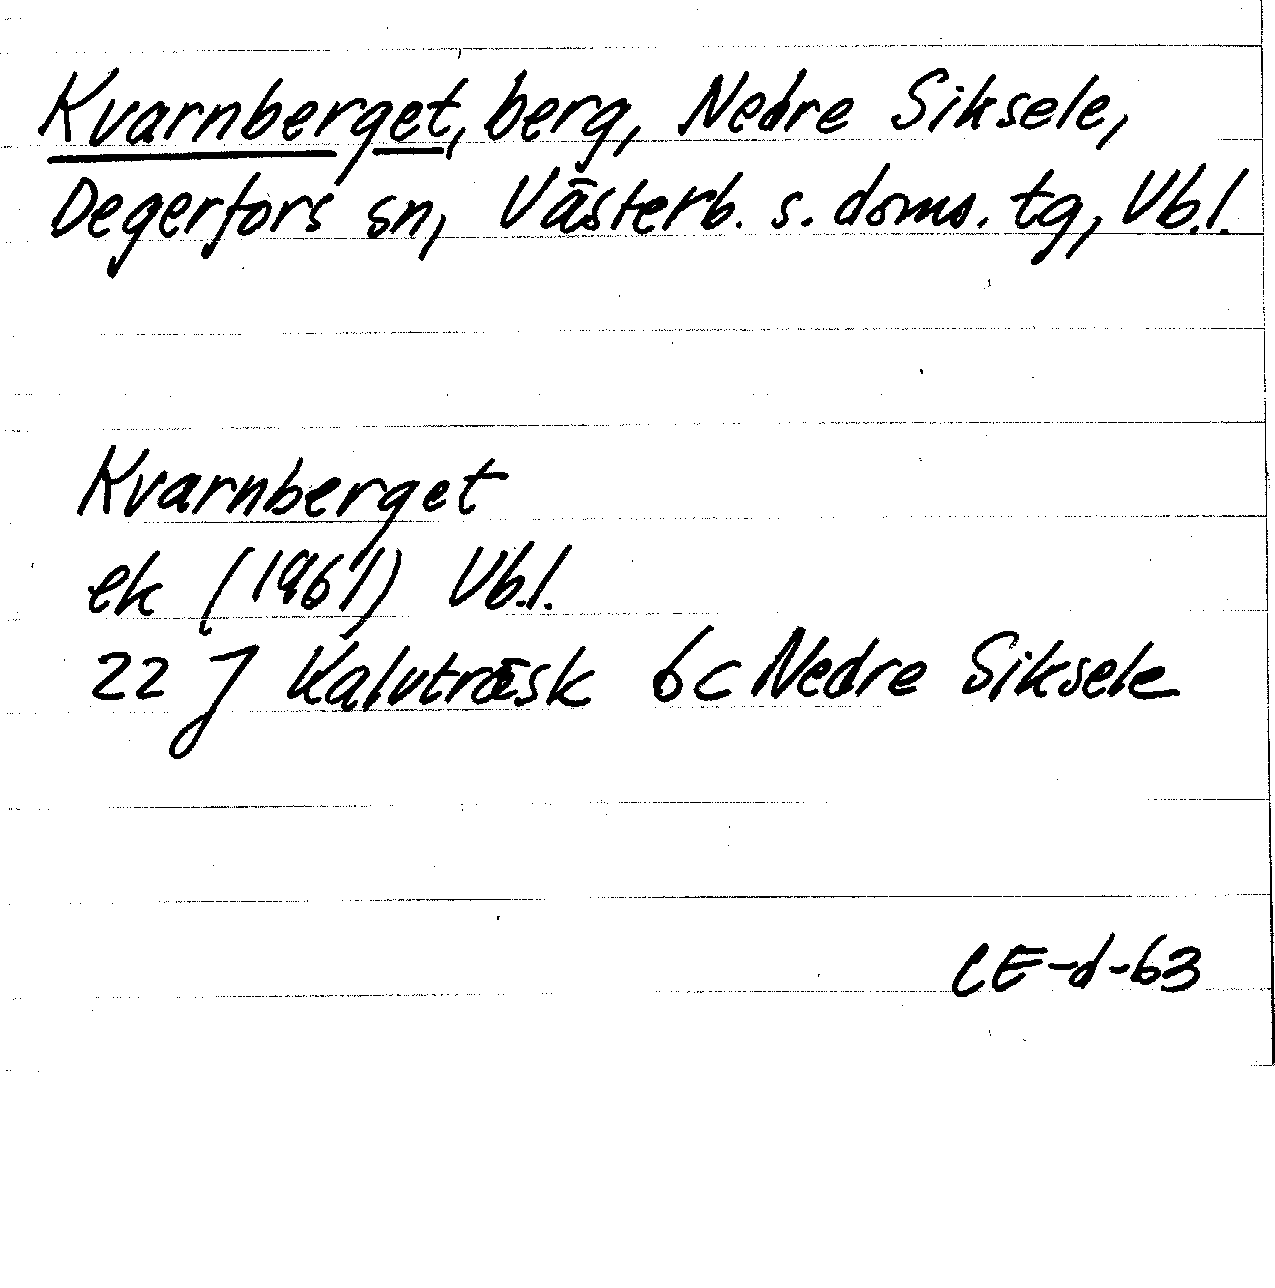 Kvarnberget, berg, Nedre Siksele,
Degerfors sn, Västerb. s. doms. tg, Vb.l.
Kvarnberget
ek (1961) Vb.l.
22 J Kalvträsk 6c Nedre Siksele
CE-d-63